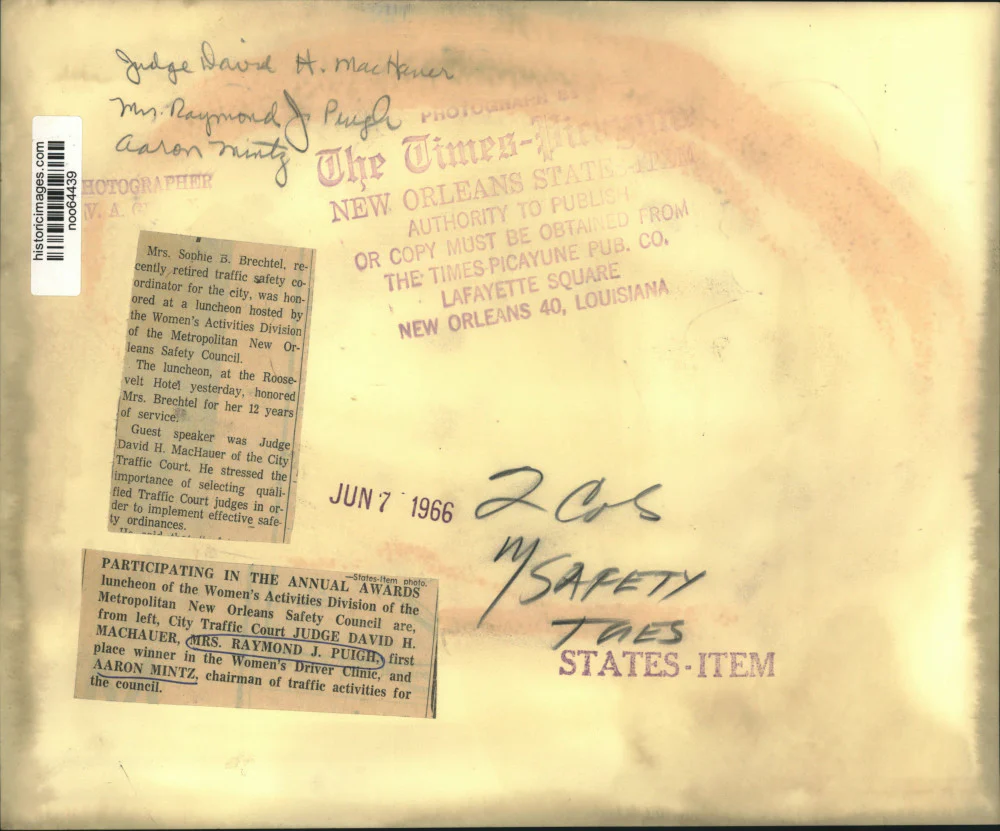 Judge David H. MacHauer
Mrs. Raymond J. Puigh
Aaron Mintz
historicimages.com
noo64439
HOTOGRAPHER
V. A.
PHOTOGRAPH BY
The Times-Picayune
NEW ORLEANS STATES-ITEM
AUTHORITY TO PUBLISH
OR COPY MUST BE OBTAINED FROM
THE TIMES-PICAYUNE PUB. CO.
LAFAYETTE SQUARE
NEW ORLEANS 40, LOUISIANA
Mrs. Sophie B. Brechtel, re-
cently retired traffic safety co-
ordinator for the city, was hon-
ored at a luncheon hosted by
the Women's Activities Division
of the Metropolitan New Or-
leans Safety Council.
The luncheon, at the Roose-
velt Hotel yesterday, honored
Mrs. Brechtel for her 12 years
of service.
Guest speaker was Judge
David H. MacHauer of the City
Traffic Court. He stressed the
importance of selecting quali-
fied Traffic Court judges in or-
der to implement effective safe-
ty ordinances.
JUN 7 1966
2 Cols
SAFETY
TUES
STATES-ITEM
—States-Item photo.
PARTICIPATING IN THE ANNUAL AWARDS
luncheon of the Women's Activities Division of the
Metropolitan New Orleans Safety Council are,
from left, City Traffic Court JUDGE DAVID H.
MACHAUER, MRS. RAYMOND J. PUIGH, first
place winner in the Women's Driver Clinic, and
AARON MINTZ, chairman of traffic activities for
the council.